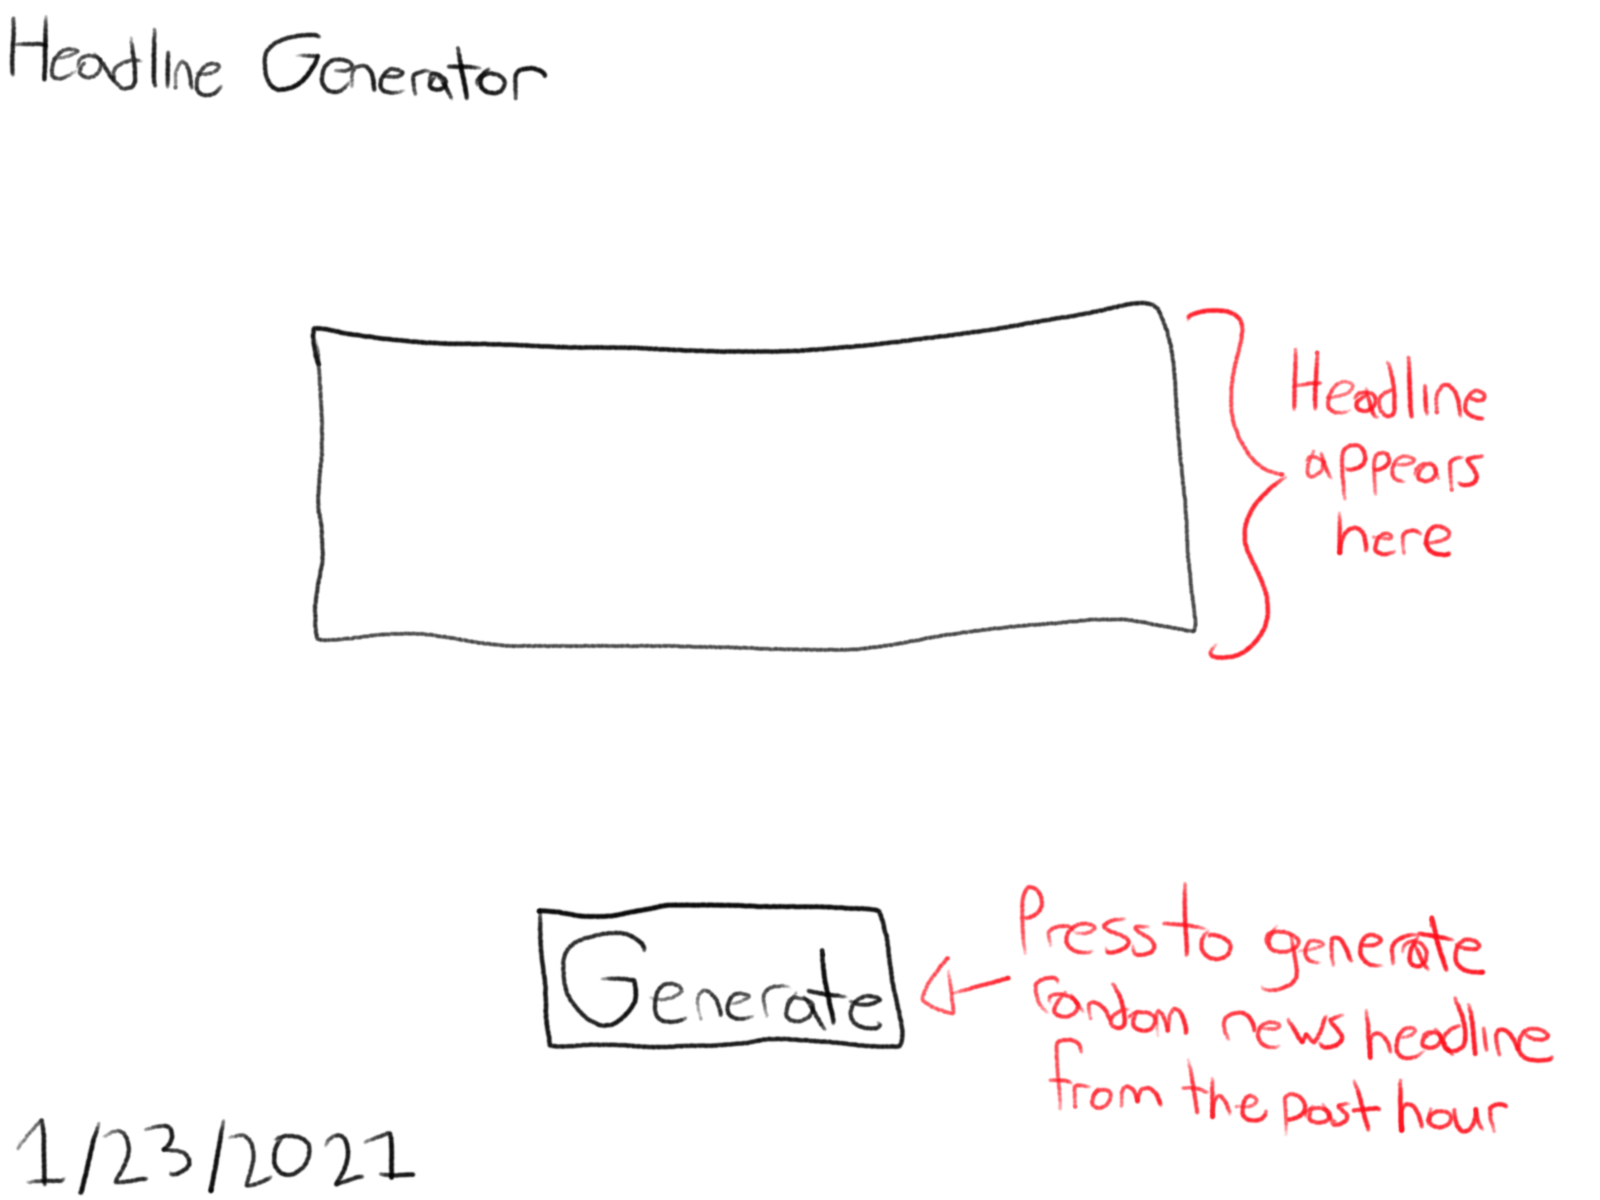 Headline Generator
Headline
appears
here
Generate
Press to generate
random news headline
from the past hour
1/23/2021